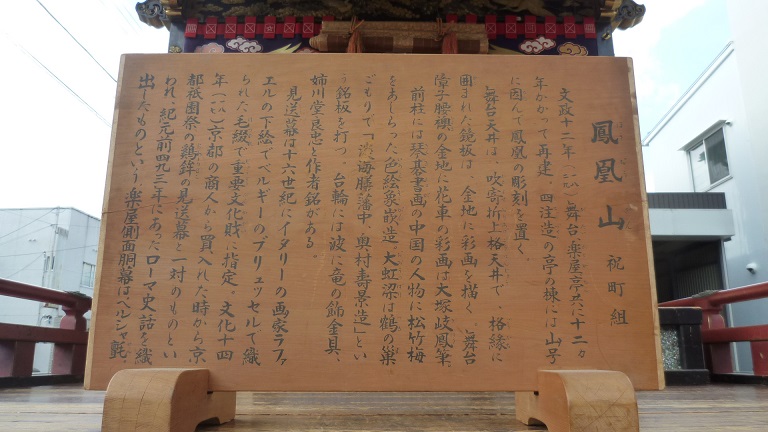 鳳凰山 祝町組
ほうおうざん
文政十二年(一八二九)舞台、楽屋、亭共に十二ヵ
年かかって再建。四注造の亭の棟には、山号
に因んで鳳凰の彫刻を置く。
舞台天井は、吹寄折上格天井で、格縁に
囲まれた鏡板は、金地に彩画を描く。舞台
障子腰襖の金地に花車の彩画は大塚岐鳳筆。
前柱には琴碁書画の中国の人物に松竹梅
をあしらった色絵象嵌造。大虹梁は鶴の巣
ごもりで「淡海膳藩中、奥村壽景造」とい
う銘板を打つ。台輪には波に竜の錺金具、
姉川堂良忠と作者銘がある。
見送幕は十六世紀にイタリーの画家ラファ
エルの下絵でベルギーのブリュッセルで織
られた毛綴で重要文化財に指定。文化十四
年(一八一七)京都の商人から買い入れた時から京
都祇園祭の鶏鉾の見送幕と一対のものとい
われ、紀元前四九三年にあったローマ史話を織
出したものという。楽屋側面胴幕はペルシャ氈。